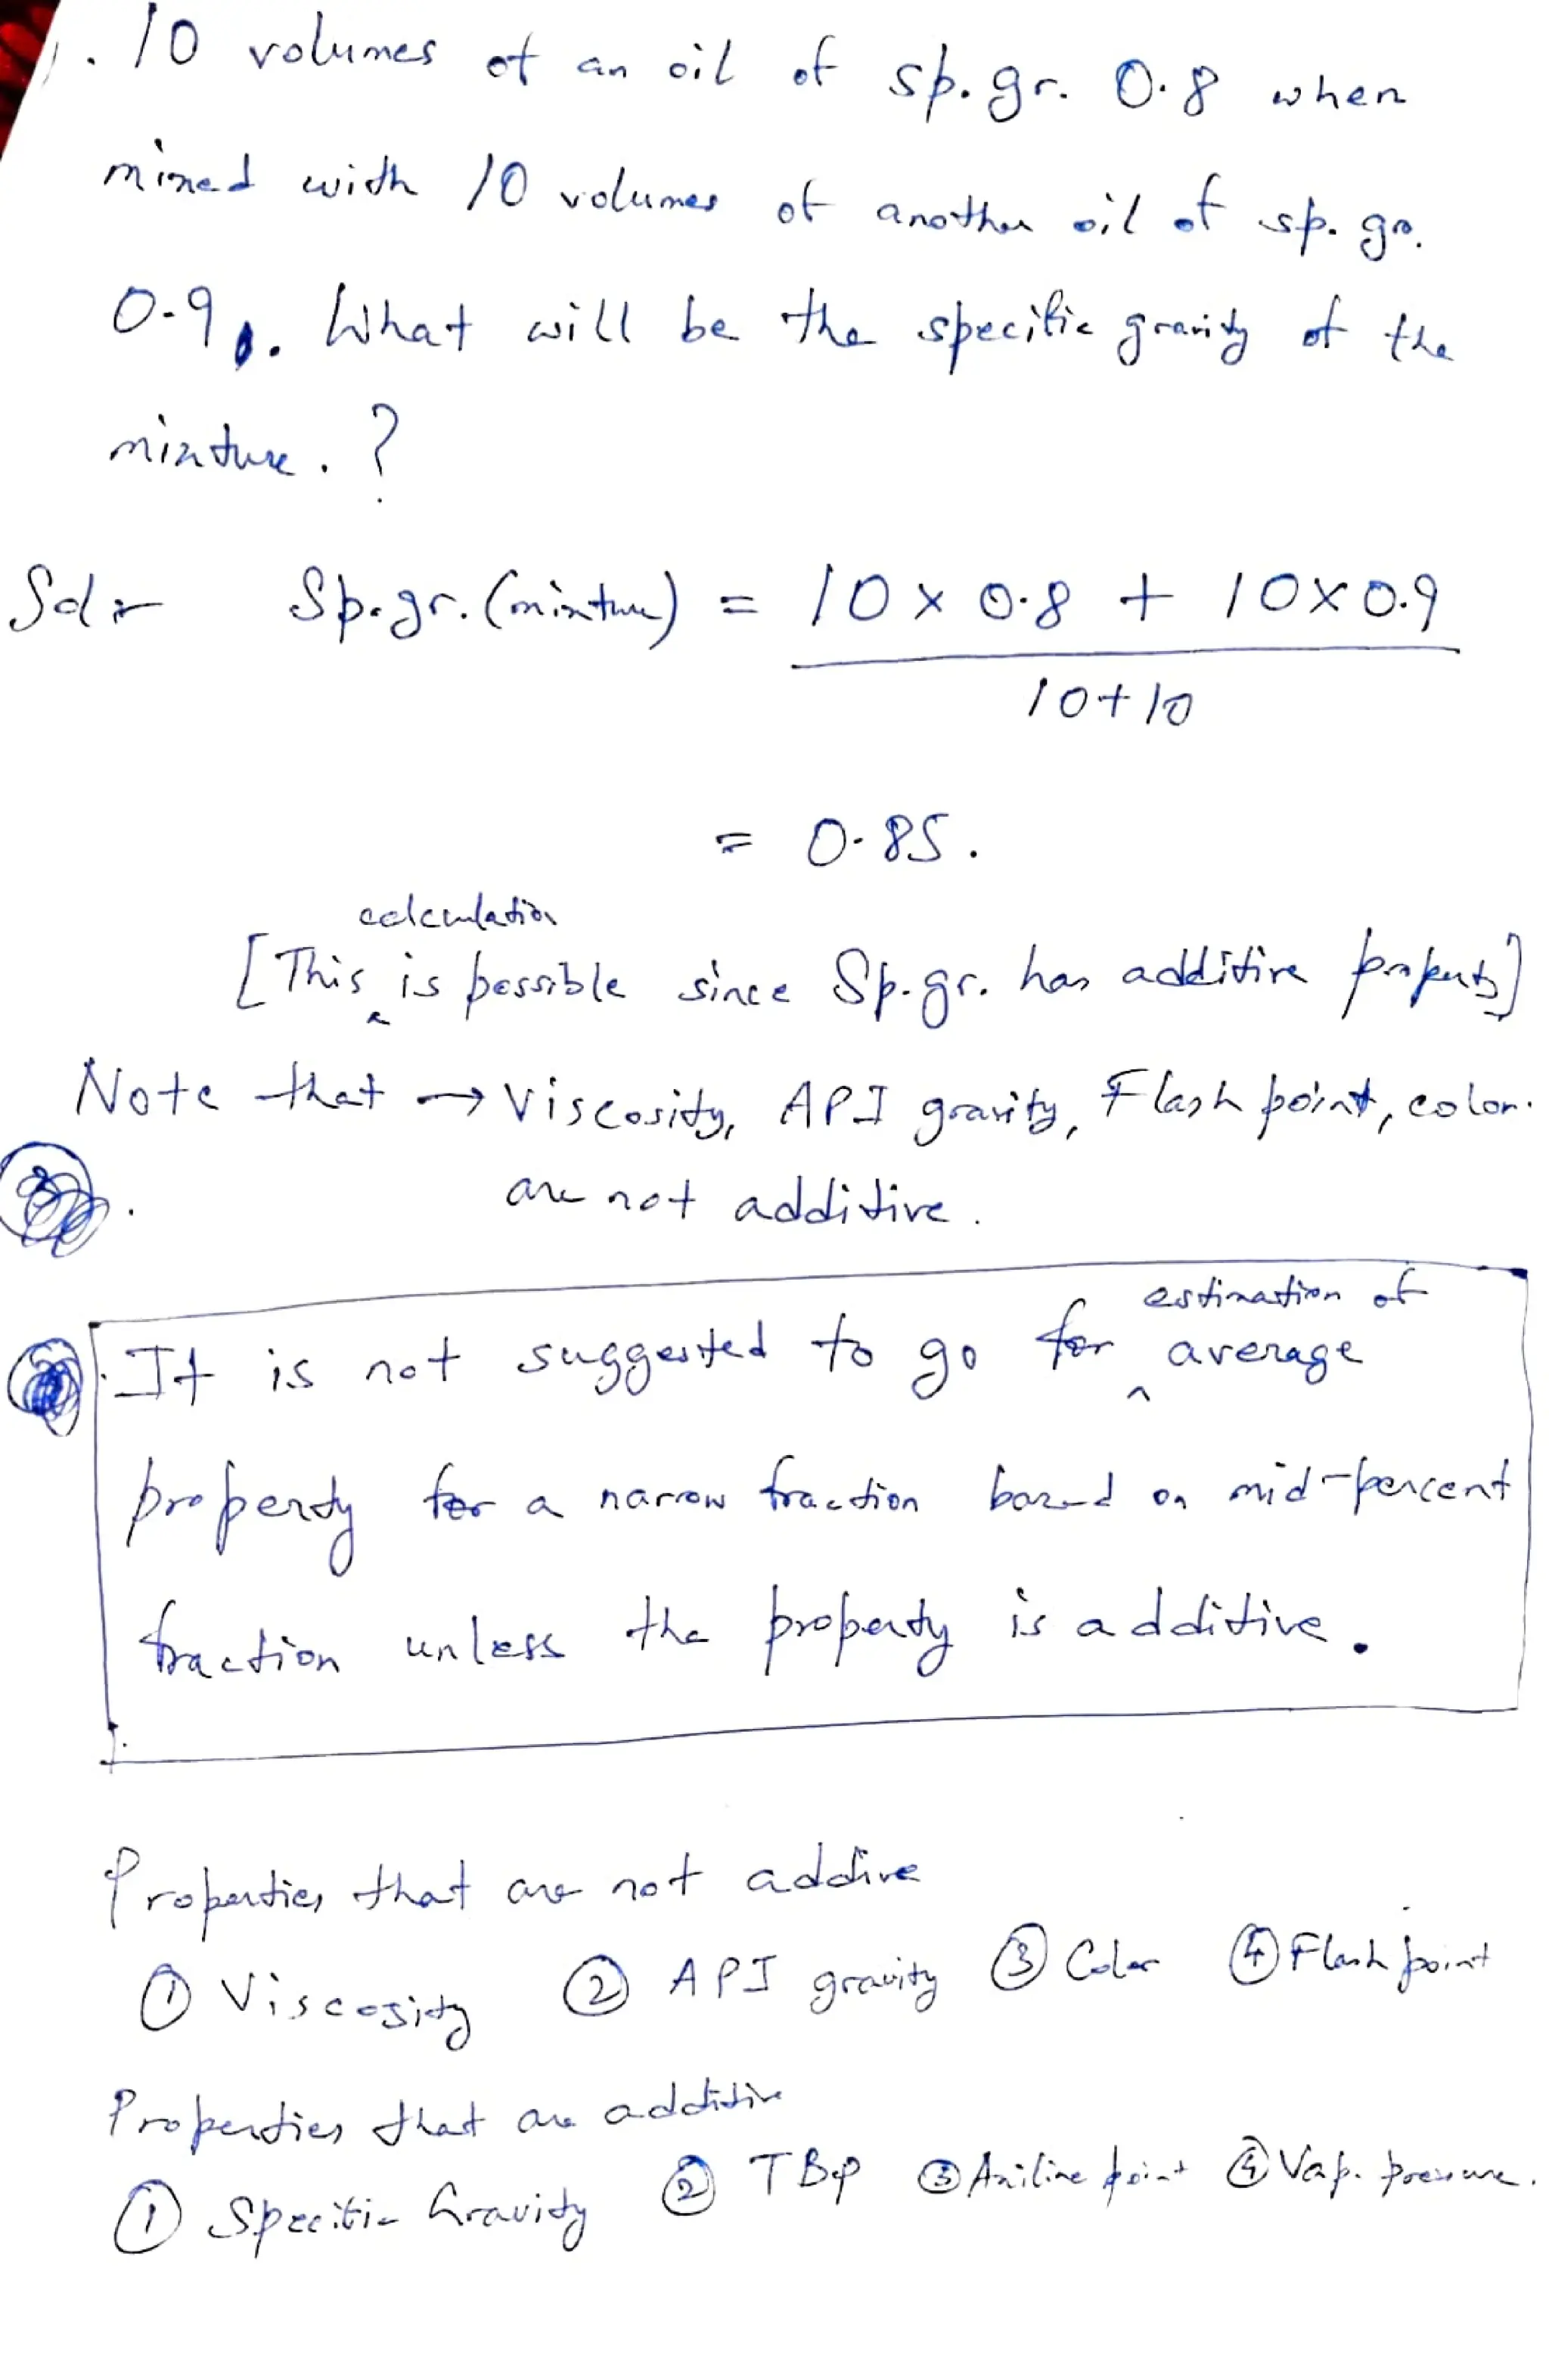 1. 10 volumes of an oil of sp.gr. 0.8 when
mixed with 10 volumes of another oil of sp. gr.
0.9. What will be the specific gravity of the
mixture. ?
Soln Sp.gr. (mixture) = 10 x 0.8 + 10 x 0.9
10+10
= 0.85.
calculation
[This ^ is possible since Sp.gr. has additive property]
Note that → Viscosity, API gravity, Flash point, color.
are not additive.
estimation of
It is not suggested to go for ^ average
property for a narrow fraction based on mid-percent
fraction unless the property is additive.
Properties that are not addive
① Viscosity ② API gravity ③ Color ④ Flash point
Properties that are additive
① Specific Gravity ② TBP ③ Aniline point ④ Vap. pressure.